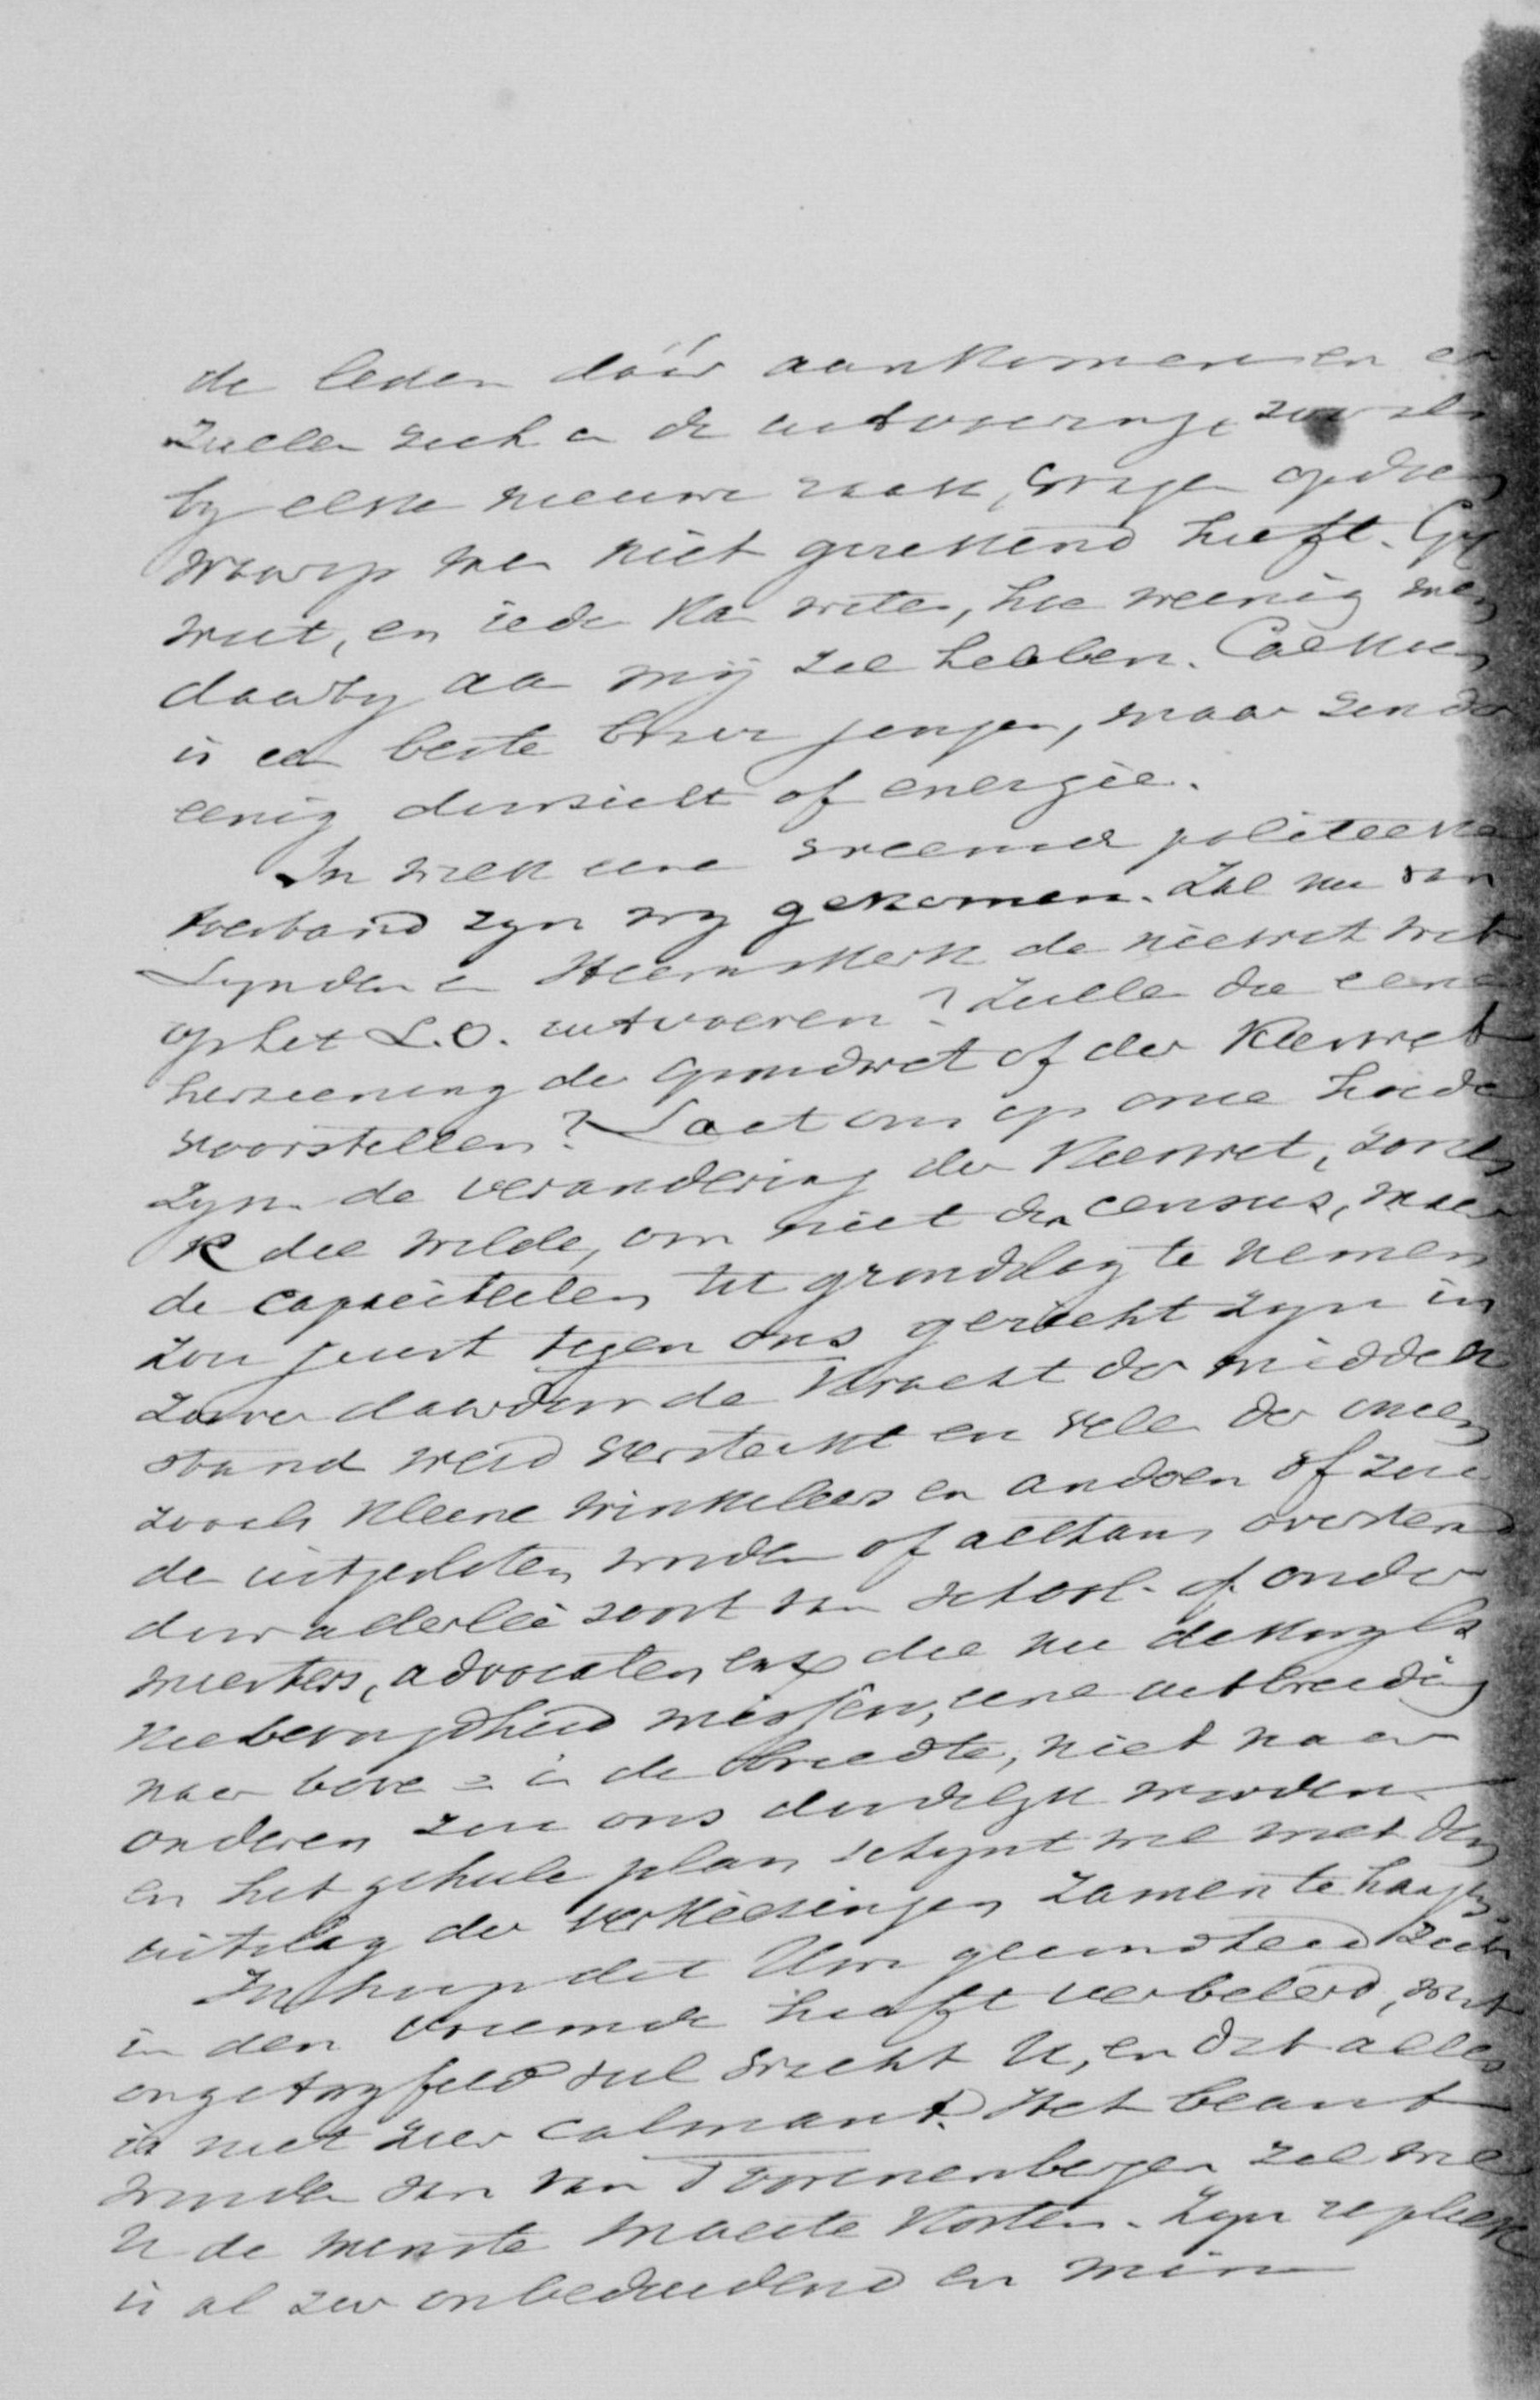 de leden dáár aankomen en en
zullen zich in de uitvoering, zooals
by elke nieuwe zaak, vragen opdoen
waarop men niet gerekend heeft. Gy
weet, en ieder kan weten, hoe weinig men
daarby aan mij zal hebben. Callen
is een beste braver jongen, maar zonder
eenig doorzicht of energie.
In welk eene vreemde politieke
toestand zyn wy gekomen. Zal nu van
Lynden en Heemskerk de nieuwe wet
op het L.O. uitvoeren? Zullen die eene
herziening der grondwet of der Kieswet
voorstellen? Laat ons op onze hoede
zyn. de verandering der Kieswet, zooals
K die wilde, om niet den census, maar
de capaciteiten tot grondslag te nemen
zou juist tegen ons gericht zyn in
zoover daardoor de kracht der midden
stand werd versterkt en vele der onzen
zooals kleine winkeliers en anderen of zou
den uitgesloten worden of althans overstemd
door allerlei soort van school- of onder
meesters, advocaten enz die nu dikwyls
kiesbevoegdheid missen, eene uitbreiding
naar boven en in de breedte, niet naar
onderen zou ons doodelyk worden
en het geheele plan schynt me met den
uitslag der verkiezingen zamen te hangen.
Ik hoop dat Uw gezondheid zich
in den vreemde heeft verbeterd, want
ongetwyfeld veel wacht U, en dat alles
is niet zeer calmant. Het beant
woorden van van Toorenenbergen zal wel
U de minste moeite kosten. Zyn repliek
is al zeer onbeduidend en min